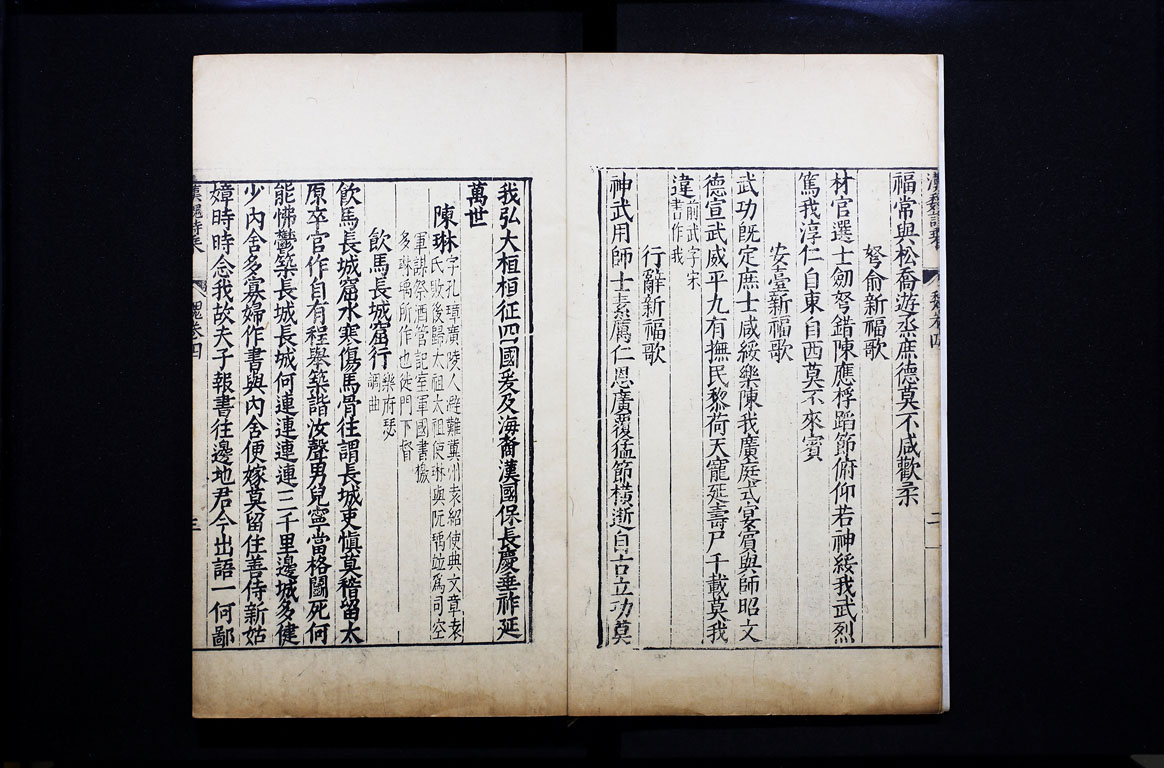 漢魏詩乘
魏卷四
二
福常與松喬遊烝庶德莫不咸歡柔
弩俞新福歌
材官選士劒弩錯陳應桴蹈節俯仰若神綏我武烈
篤我淳仁自東自西莫不來賓
安臺新福歌
武功旣定庶士咸綏樂陳我廣庭式宴賓與師昭文
德宣武威平九有撫民黎荷天寵延壽尸千載莫我
違前武字宋
書作我
行辭新福歌
神武用師士素厲仁恩廣覆猛節橫逝自古立功莫
我弘大桓桓征四國爰及海裔漢國保長慶垂祚延
萬世
陳琳字孔璋廣陵人避難冀州袁紹使典文章袁
氏敗後歸太祖太祖使琳與阮瑀竝爲司空
軍謀祭酒管記室軍國書檄
多琳瑀所作也徙門下督
飲馬長城窟行樂府瑟
調曲
飲馬長城窟水寒傷馬骨往謂長城吏愼莫稽留太
原卒官作自有程舉築諧汝聲男兒寧當格鬭死何
能怫鬱築長城長城何連連連連三千里邊城多健
少內舍多寡婦作書與內舍便嫁莫留住善侍新姑
嫜時時念我故夫子報書往邊地君今出語一何鄙
漢魏詩乘
魏卷四
三